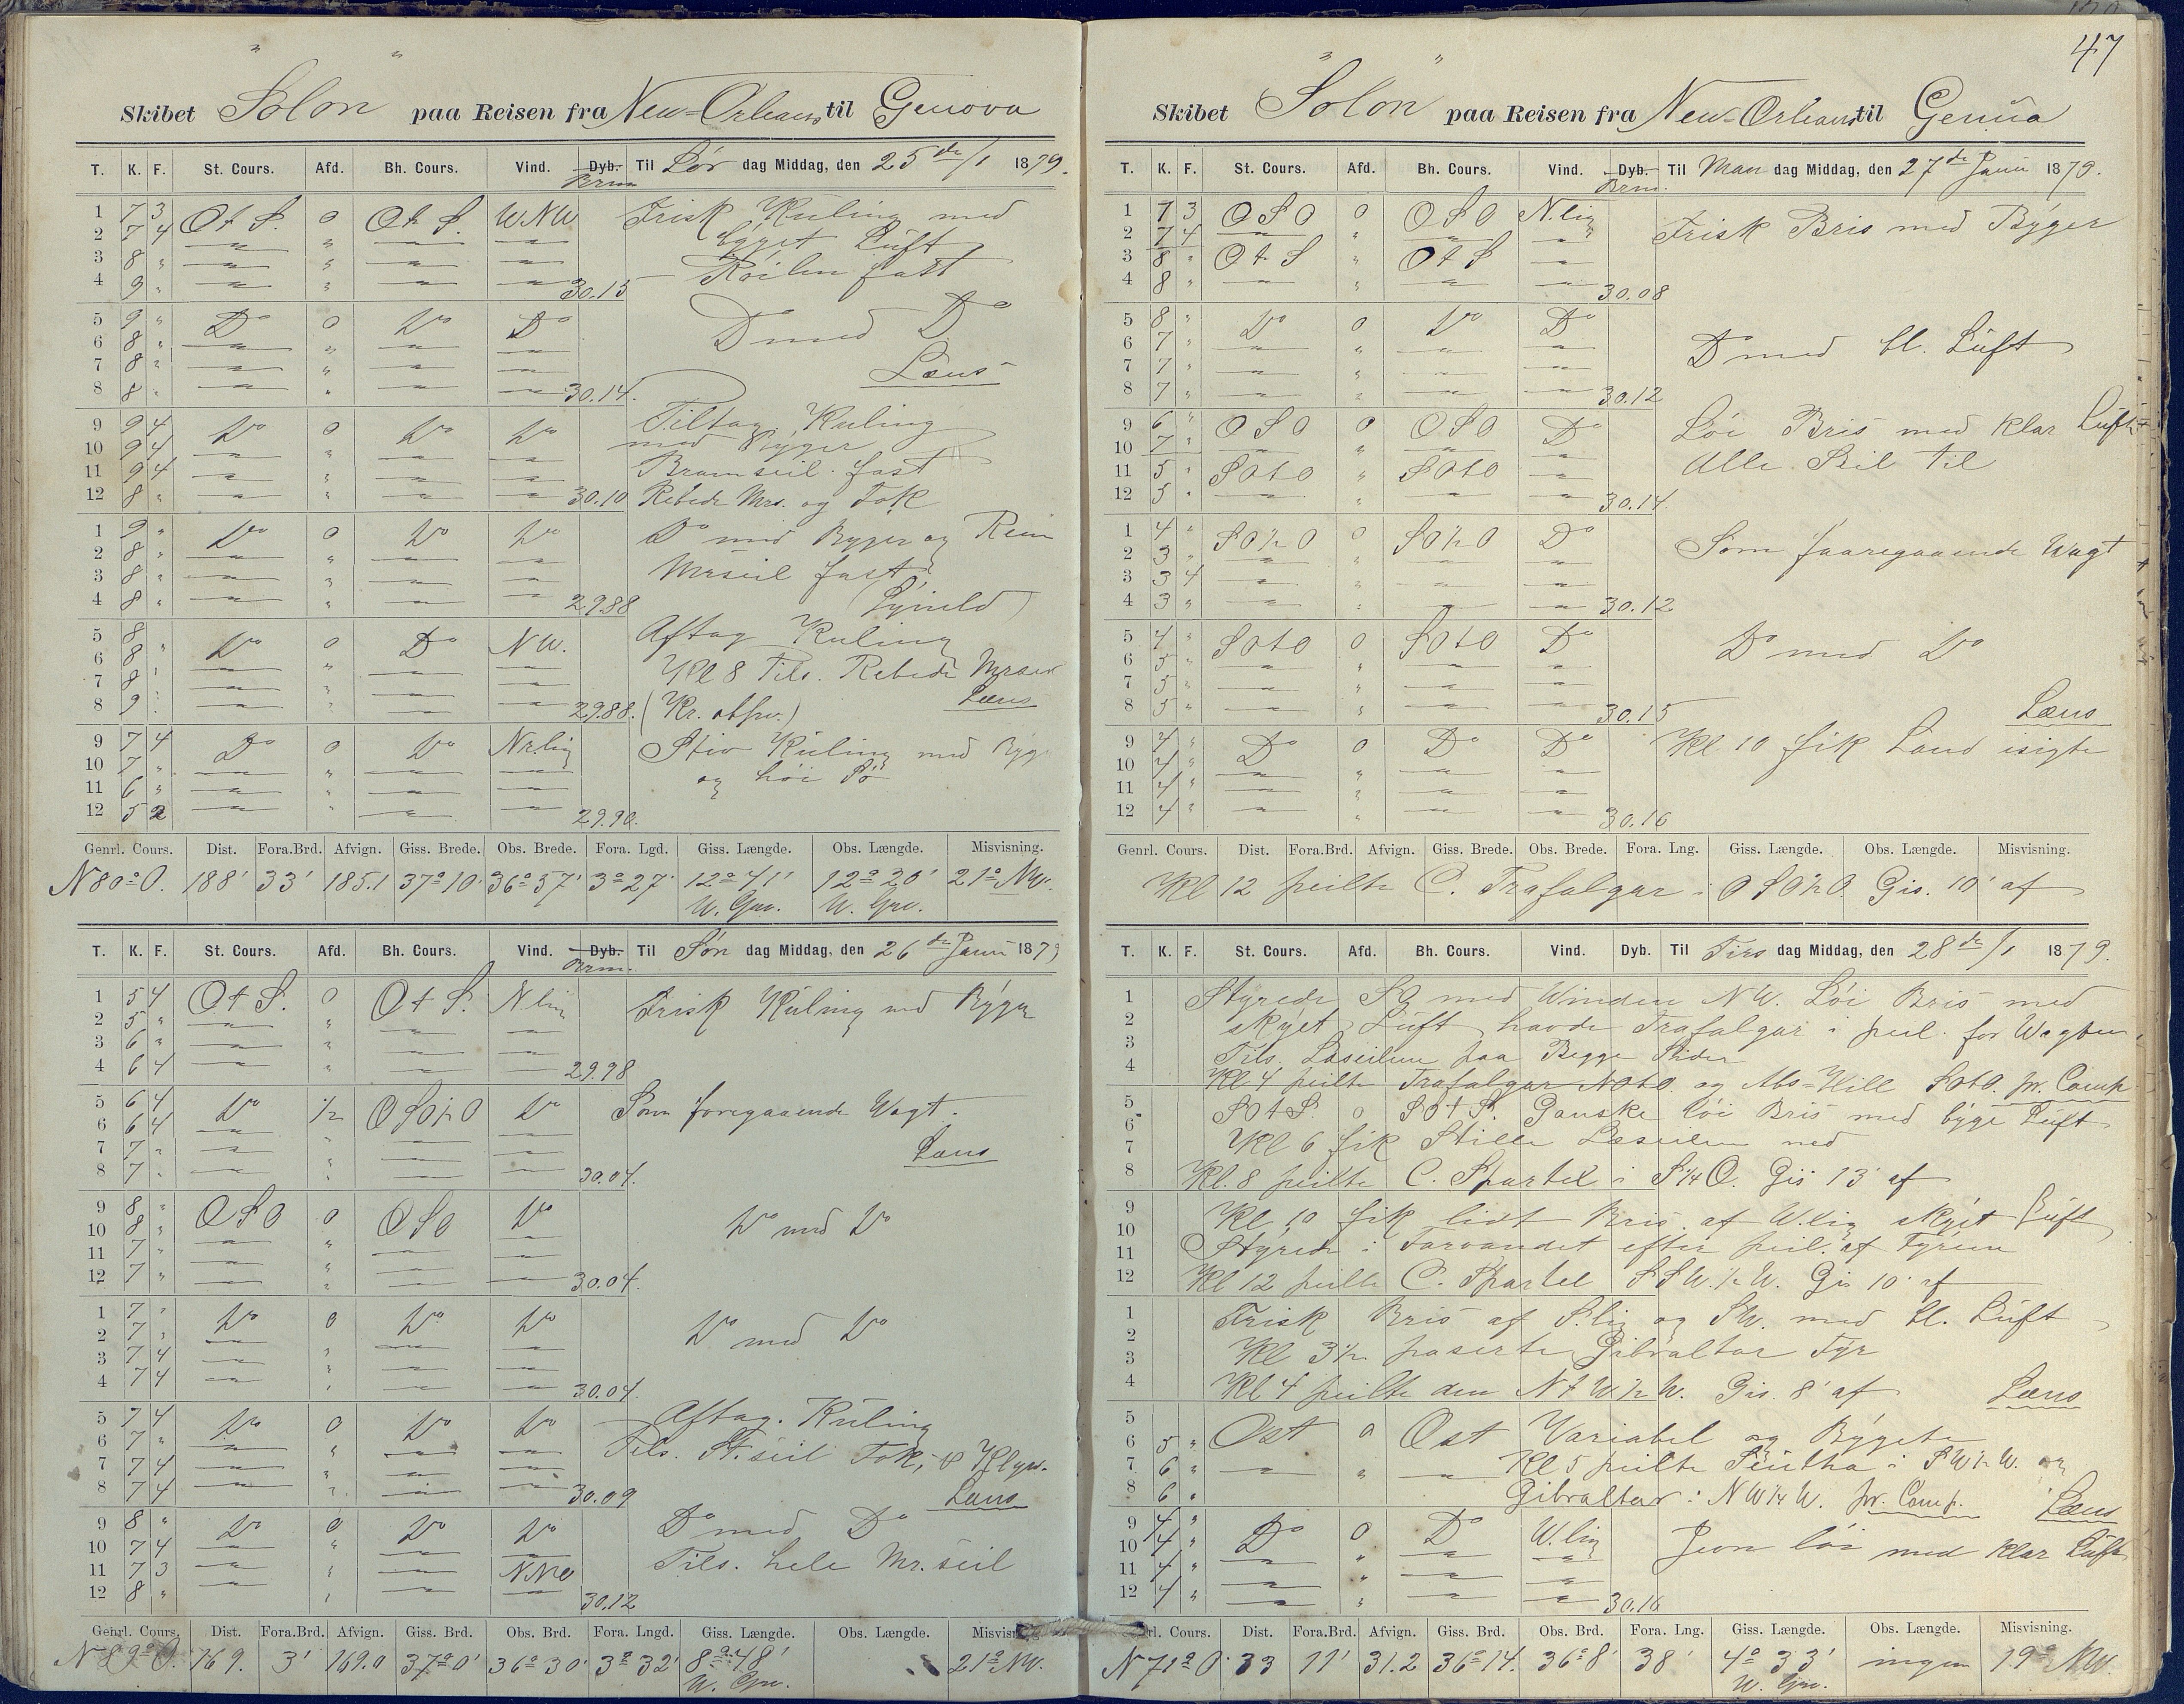 47
Skibet "Solon" paa Reisen fra New-Orleans til Genova
T. K. F. St. Cours. Afd. Bh. Cours. Vind. Dyb. Brm. Til Lør dag Middag, den 25de/1 1879.
1 7 3 O t S. 0 O t S. WNW Frisk Kuling med
2 7 4 — " — — bÿget Lüft
3 8 " — " — — Røilen fast
4 9 " — " — — 30.15
5 9 " Do 0 Do Do Do med Do
6 8 " — " — —
7 8 " — " — — Læns
8 8 " — " — — 30.14.
9 9 4 Do 0 Do Do Tiltag. Kuling
10 9 4 — " — — med Byger
11 9 4 — " — — Bramseil fast
12 8 " — " — — 30.10 Rebede Mrs. og Fok
1 9 " Do 0 Do Do Do med Byger og
2 8 " — " — —
3 8 " — " — — Mrseil fast
4 8 " — " — — 29.88
5 8 " Do 0 Do NW. Aftag Kuling
6 8 " — " — — Kl 8 Tils. Rebede
7 8 " — " — — Læns
8 9 " — " — — 29.88. (Kr. obsrv.)
9 7 4 Do 0 Do Nrlig Stiv Kuling med Byg
10 7 " — " — — og høi Sø
11 6 " — " — —
12 5 2 — " — — 29.90.
Genrl. Cours. Dist. Fora.Brd. Afvign. Giss. Brede. Obs. Brede. Fora. Lgd. Giss. Længde. Obs. Længde. Misvisning.
N 80° O. 188' 33' 185.1 37° 10' 36° 57' 3° 27' 12° 41' 12° 20' 21° NW.
W. Grv. W. Grv.
T. K. F. St. Cours. Afd. Bh. Cours. Vind. Dyb. Brm. Til Søn dag Middag, den 26de Janu 1879
1 5 4 O t S. 0 O t S. N.lig Frisk Küling med Bÿger
2 5 " — " — —
3 6 " — " — —
4 6 4 — " — — 29.98
5 6 4 Do 1/2 OSO1/2O Do Som foregaaende Wagt.
6 6 4 — — —
7 7 " — " — — Læns
8 7 " — " — — 30.04.
9 8 " OSO 0 OSO Do Do med Do
10 8 " — " — —
11 7 " — " — —
12 7 " — " — — 30.04.
1 7 " Do 0 Do Do Do med Do
2 7 " — " — —
3 7 4 — " — —
4 7 4 — " — — 30.04.
5 7 4 Do 0 Do Do Aftag. Küling
6 7 " — " — — Tils. St.seil Fok, & Klyv.
7 7 4 — " — —
8 7 4 — " — — 30.09 Læns
9 8 " Do 0 Do Do Do med Do
10 7 4 — " — — Tils. hele Mr.seil
11 7 3 — " — NNW
12 8 " — " — — 30.12
Genrl. Cours. Dist. Fora.Brd. Afvign. Giss. Brd. Obs. Brd. Fora. Lngd. Giss. Længde. Obs. Længde.
N 89° O. 169. 3' 169.0 37° 0' 36° 30' 3° 32' 8° 48' 21° NW.
W. Grv.
Skibet "Solon" paa Reisen fra New-Orleans til Genüa
T. K. F. St. Cours. Afd. Bh. Cours. Vind. Dyb. Brm. Til Man dag Middag, den 27de Janu 1879.
1 7 3 OSO 0 OSO N.lig Frisk Bris med Bÿger
2 7 4 — " — —
3 8 " O t S " O t S —
4 8 " — " — — 30.08
5 8 " Do 0 Do Do Do med bl. Lüft
6 7 " — " — —
7 7 " — " — —
8 7 " — " — — 30.12
9 6 " OSO 0 OSO Do Løi Bris med klar Lüft
10 7 " — " — — Alle Seil til
11 5 " SOtO " SOtO —
12 5 " — " — — 30.14.
1 4 " SO1/2O 0 SO1/2O Do Som foaregaaende Wagt
2 3 " — " — —
3 3 4 — " — —
4 3 " — " — — 30.12
5 4 " SOtO 0 SOtO Do Do med Do
6 5 " — " — —
7 5 " — " — —
8 5 " — " — — 30.15 Læns
9 4 " Do 0 Do Do Kl 10 fik Land isigte
10 4 " — " — —
11 4 " — " — —
12 4 " — " — — 30.16
Genrl. Cours. Dist. Fora.Brd. Afvign. Giss. Brede. Obs. Brede. Fora. Lng. Giss. Længde. Obs. Længde. Misvisning.
Kl 12 peilte C. Trafalgar i OSO1/2O. Gis. 10' af
T. K. F. St. Cours. Afd. Bh. Cours. Vind. Dyb. Til Tirs dag Middag, den 28de/1 1879.
1 Styrede SO med Winden NW. Løi Bris med
2 skÿet Lüft havde Trafalgar i peil. for Wagten
3 Tils. Læseilene paa Begge Sider
4 Kl 4 peilte Trafalgar NOtO og Abs-Hill SOtO. pr. Comp
5 SOtS. 0 SOtS. Ganske løi Bris med bÿge Lüft
6 Kl 6 fik Stille Læseilene ned
7
8 Kl. 8 peilte C. Spartel i S1/4O. Gis 13' af
9 Kl 10 fik lidt Bris af W.lig skÿet Lüft
10 Stÿrede i Farvandet efter peil. af Fÿrene
11
12 Kl 12 peilte C. Spartel SSW.1/2W. Gis 10' af
1 Frisk Bris af S.lig og SW. med bl. Lüft
2
3 Kl 3 1/2 paserte Gibraltar Fyr
4 Kl 4 peilte den NtW1/2W. Gis. 8' af Læns
5 Variabel og Bÿget
6 5 " Ost 0 Ost
7 6 " — " — Kl 5 peilte Seütha i SW1/2W. og
8 6 " Gibraltar i NW1/4W. pr. Comp. Læns
9 4 " Do 0 Do W.lig Jevn løi med klar Lüft
10 4 " — " — —
11 4 " — " — —
12 4 " — " — — 30.16
Cours. Dist. Fora.Brd. Afvign. Giss. Brd. Obs. Brd. Fora. Lng. Giss. Længde. Obs. Længde. Misvisning.
N 71° O. 33 11' 31.2 36° 14. 36° 8' 38' 4° 33' ingen 19° NW.
W. Grv.